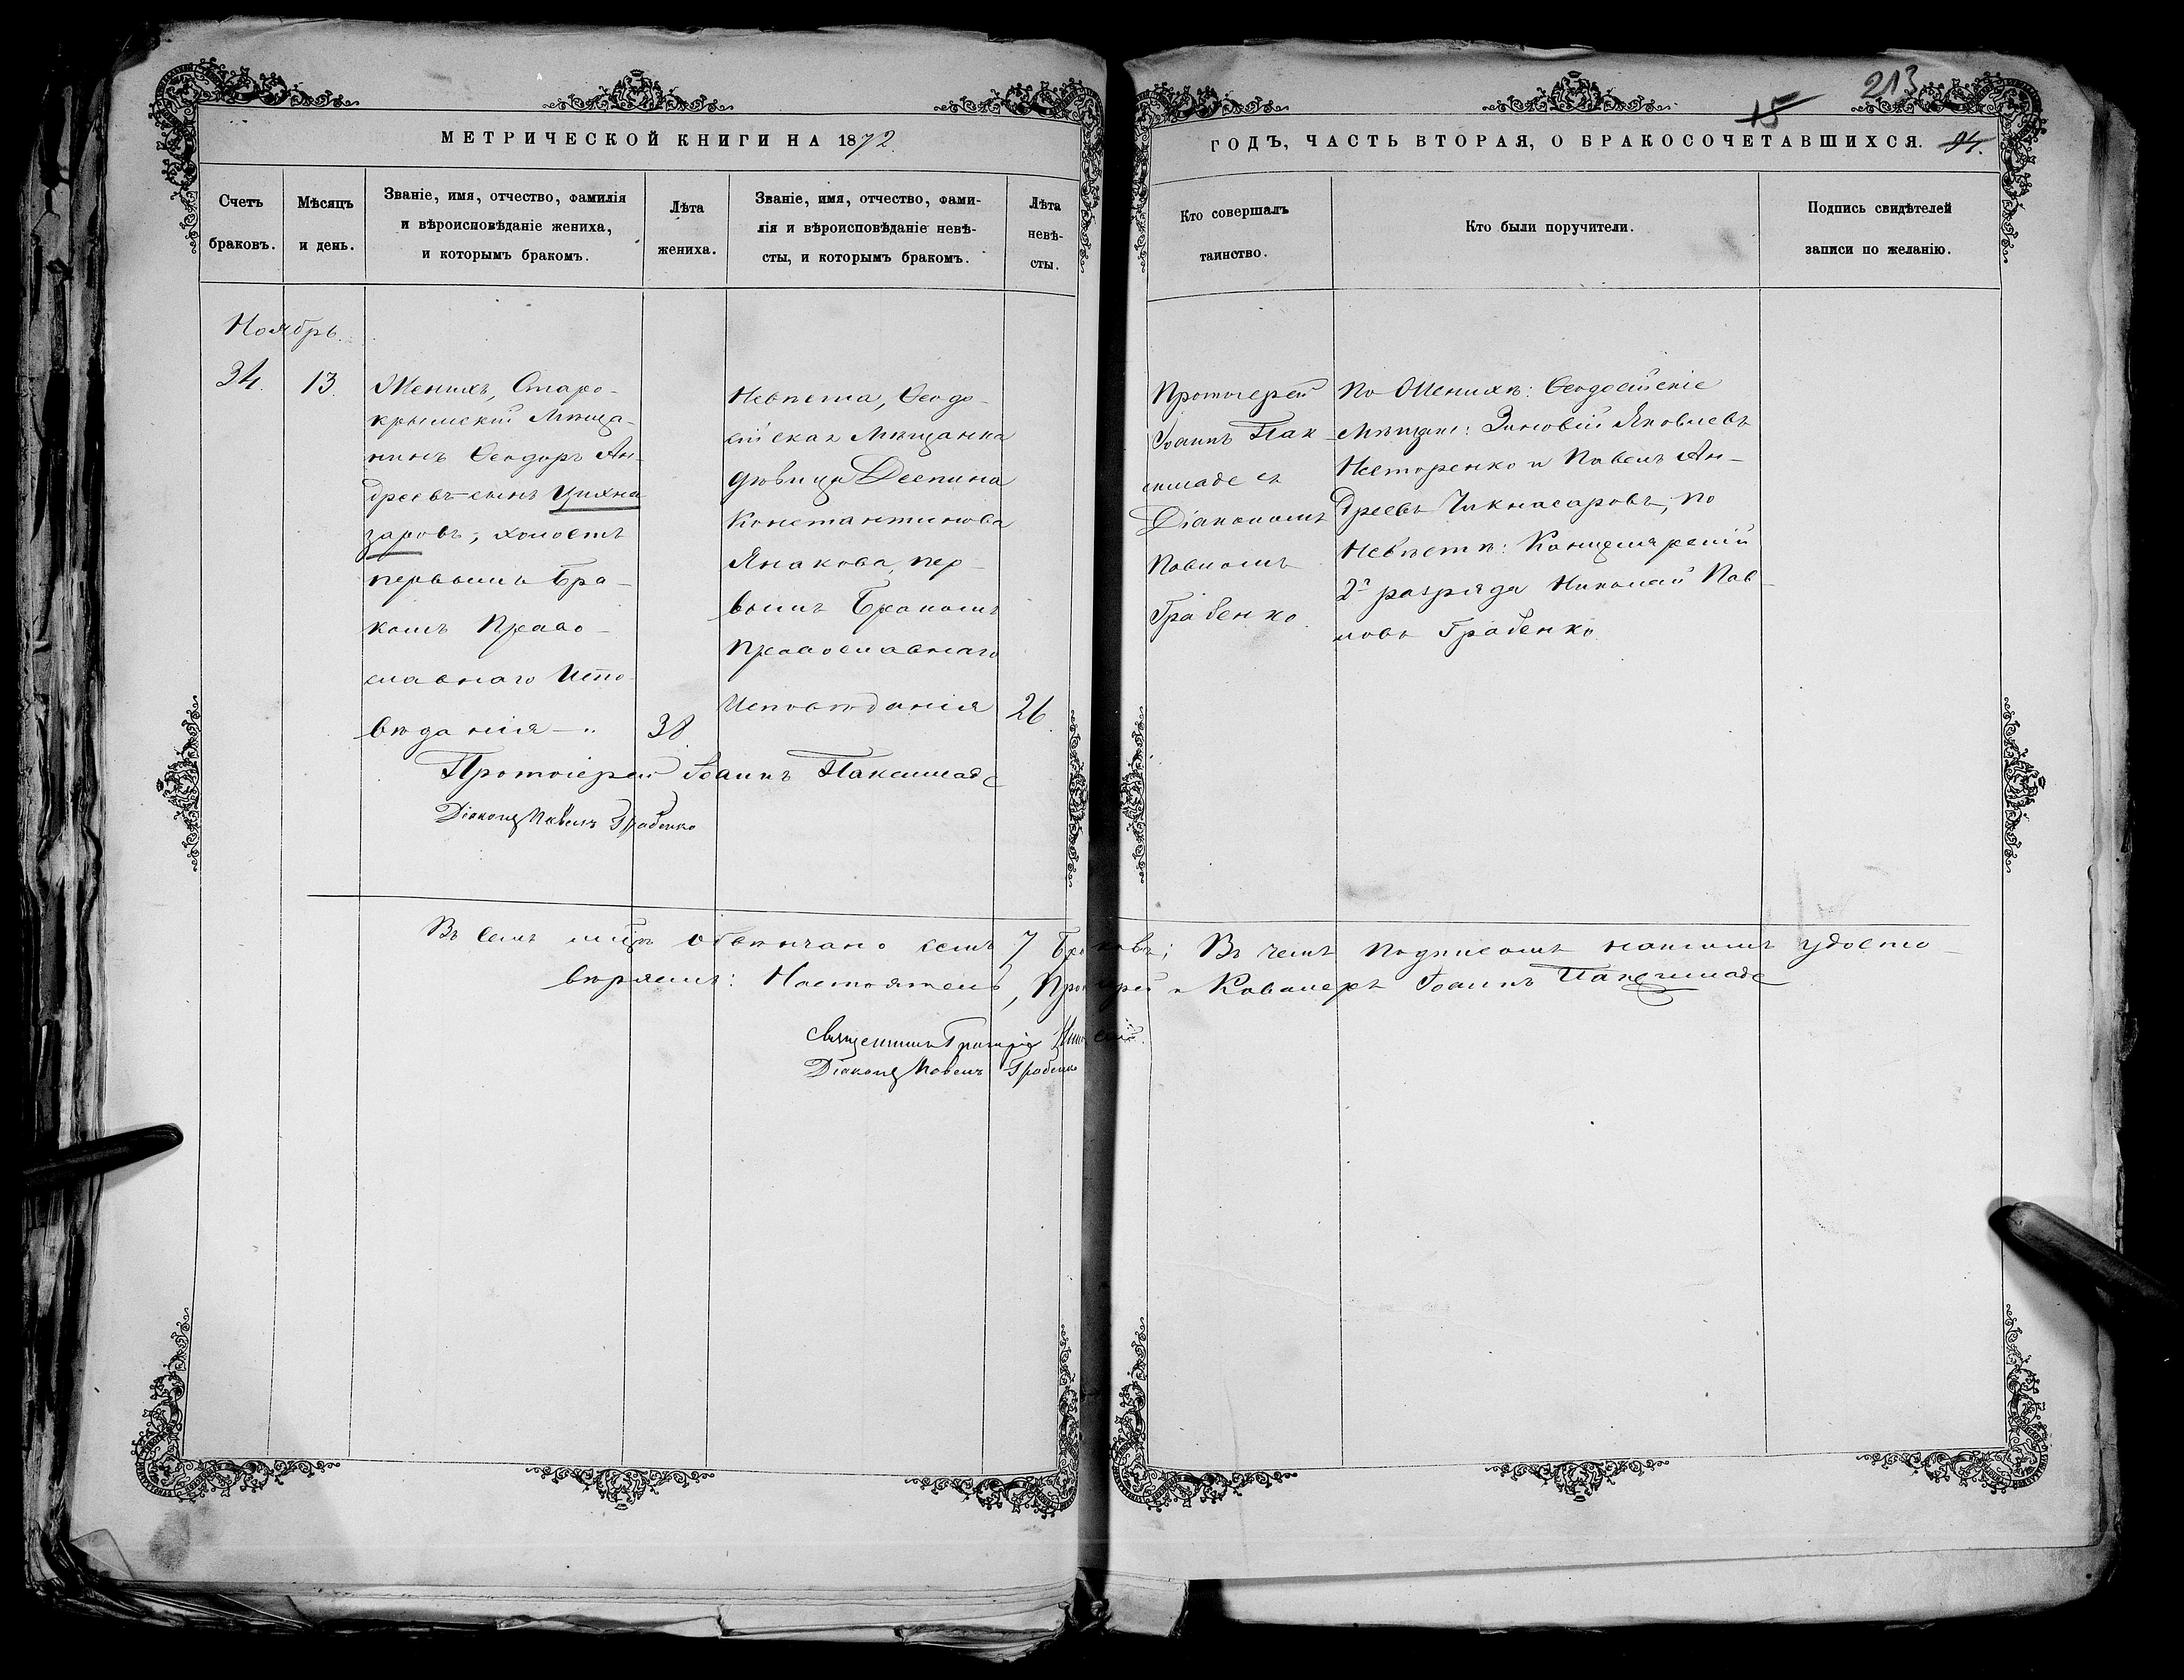 213
15
МЕТРИЧЕСКОЙ КНИГИ НА 1872
ГОДЪ, ЧАСТЬ ВТОРАЯ, О БРАКОСОЧЕТАВШИХСЯ. 94.
Счетъ
браковъ.
Мѣсяцъ
и день.
Званіе, имя, отчество, фамилія
и вѣроисповѣданіе жениха,
и которымъ бракомъ.
Лѣта
жениха.
Званіе, имя, отчество, фами-
лія и вѣроисповѣданіе невѣ-
сты, и которымъ бракомъ.
Лѣта
невѣ-
сты.
Кто совершалъ
таинство.
Кто были поручители.
Подпись свидѣтелей
записи по желанію.
Ноябрь.
34.
13.
Женихъ, Старо-
крымскій Мѣща-
нинъ Ѳеодоръ Ан-
дреевъ-сынъ Чихна
заровъ, холостъ
первымъ Бра-
комъ Право-
славнаго Испо-
вѣданія —"
38.
Невѣста, Ѳеодо-
сійская Мѣщанка
дѣвица Деспина
Константинова
Янакова, пер-
вымъ Бракомъ
Православнаго
Исповѣданія
26.
Протоіерей
Іоаннъ Пак-
симаде съ
Діакономъ
Павломъ
Грабенко.
По Женихѣ: Ѳеодосійскіе
Мѣщане: Зиновій Яковлевъ
Несторенко и Павелъ Ан-
дреевъ Чикназаровъ, по
Невѣстѣ: Канцелярскій
2го разряда Николай Пав-
ловъ Грабенко.
Протоіерей Іоаннъ Паксимаде
Діаконъ Павелъ Грабенко
Въ семъ м-цѣ обвѣнчано семь 7 Браковъ; Въ чемъ подписомъ нашимъ удосто-
вѣряемъ: Настоятель, Протоіерей и Кавалеръ Іоаннъ Паксимаде
Священникъ Григорій
Діаконъ Павелъ Грабенко